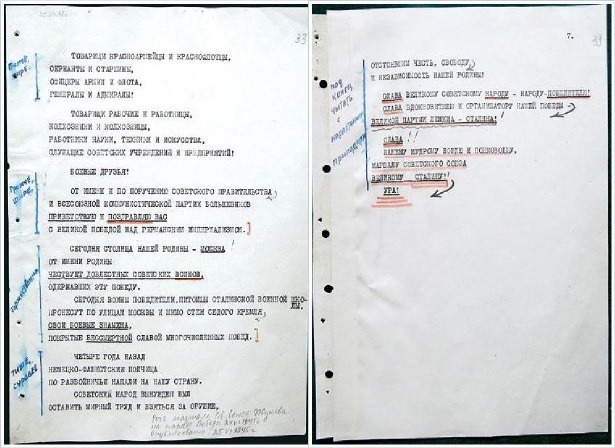 33
ТОВАРИЩИ КРАСНОАРМЕЙЦЫ И КРАСНОФЛОТЦЫ,
СЕРЖАНТЫ И СТАРШИНЫ,
ОФИЦЕРЫ АРМИИ И ФЛОТА,
ГЕНЕРАЛЫ И АДМИРАЛЫ!
ТОВАРИЩИ РАБОЧИЕ И РАБОТНИЦЫ,
КОЛХОЗНИКИ И КОЛХОЗНИЦЫ,
РАБОТНИКИ НАУКИ, ТЕХНИКИ И ИСКУССТВА,
СЛУЖАЩИЕ СОВЕТСКИХ УЧРЕЖДЕНИЙ И ПРЕДПРИЯТИЙ!
БОЕВЫЕ ДРУЗЬЯ!
ОТ ИМЕНИ И ПО ПОРУЧЕНИЮ СОВЕТСКОГО ПРАВИТЕЛЬСТВА
И ВСЕСОЮЗНОЙ КОММУНИСТИЧЕСКОЙ ПАРТИИ БОЛЬШЕВИКОВ
ПРИВЕТСТВУЮ И ПОЗДРАВЛЯЮ ВАС
С ВЕЛИКОЙ ПОБЕДОЙ НАД ГЕРМАНСКИМ ИМПЕРИАЛИЗМОМ.
СЕГОДНЯ СТОЛИЦА НАШЕЙ РОДИНЫ - МОСКВА !
ОТ ИМЕНИ РОДИНЫ
ЧЕСТВУЕТ ДОБЛЕСТНЫХ СОВЕТСКИХ ВОИНОВ,
ОДЕРЖАВШИХ ЭТУ ПОБЕДУ.
СЕГОДНЯ ВОИНЫ ПОБЕДИТЕЛИ, ПИТОМЦЫ СТАЛИНСКОЙ ВОЕННОЙ ШКО-
ЛЫ,
ПРОНЕСУТ ПО УЛИЦАМ МОСКВЫ И МИМО СТЕН СЕДОГО КРЕМЛЯ,
СВОИ БОЕВЫЕ ЗНАМЕНА,
ПОКРЫТЫЕ БЕССМЕРТНОЙ СЛАВОЙ МНОГОЧИСЛЕННЫХ ПОБЕД.
ЧЕТЫРЕ ГОДА НАЗАД
НЕМЕЦКО-ФАШИСТСКИЕ ПОЛЧИЩА
ПО РАЗБОЙНИЧЬИ НАПАЛИ НА НАШУ СТРАНУ.
СОВЕТСКИЙ НАРОД ВЫНУЖДЕН БЫЛ
ОСТАВИТЬ МИРНЫЙ ТРУД И ВЗЯТЬСЯ ЗА ОРУЖИЕ,
7.
39
ОТСТОЯВШИМ ЧЕСТЬ, СВОБОДУ
И НЕЗАВИСИМОСТЬ НАШЕЙ РОДИНЫ!
СЛАВА ВЕЛИКОМУ СОВЕТСКОМУ НАРОДУ - НАРОДУ-ПОБЕДИТЕЛЮ!
СЛАВА ВДОХНОВИТЕЛЮ И ОРГАНИЗАТОРУ НАШЕЙ ПОБЕДЫ
ВЕЛИКОЙ ПАРТИИ ЛЕНИНА - СТАЛИНА!
СЛАВА !!
НАШЕМУ МУДРОМУ ВОЖДЮ И ПОЛКОВОДЦУ,
МАРШАЛУ СОВЕТСКОГО СОЮЗА
ВЕЛИКОМУ СТАЛИНУ!
УРА!